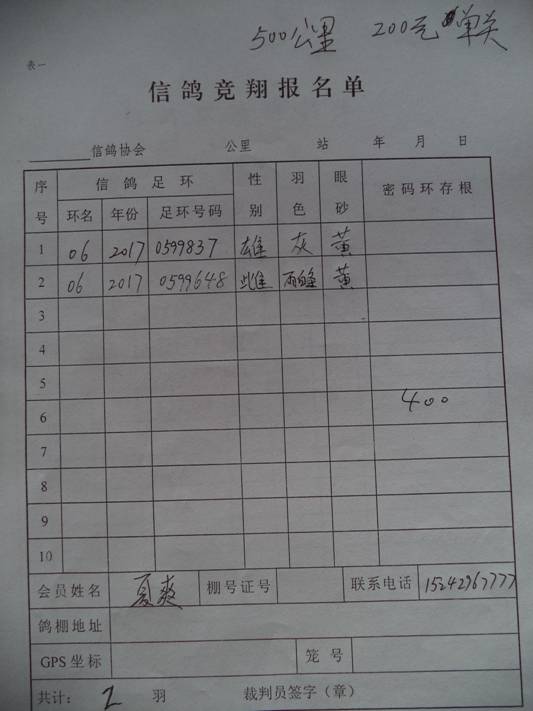 500公里 200元 单关
表一
信鸽竞翔报名单
信鸽协会 公里 站 年 月 日
序号 信鸽足环 性别 羽色 眼砂 密码环存根
环名 年份 足环号码
1 06 2017 0599837 雄 灰 黄
2 06 2017 0599648 雌 雨白条 黄
3
4
5
6 400
7
8
9
10
会员姓名 夏爽 棚号证号 联系电话 15242967777
鸽棚地址
GPS坐标 笼号
共计: 2 羽 裁判员签字(章)